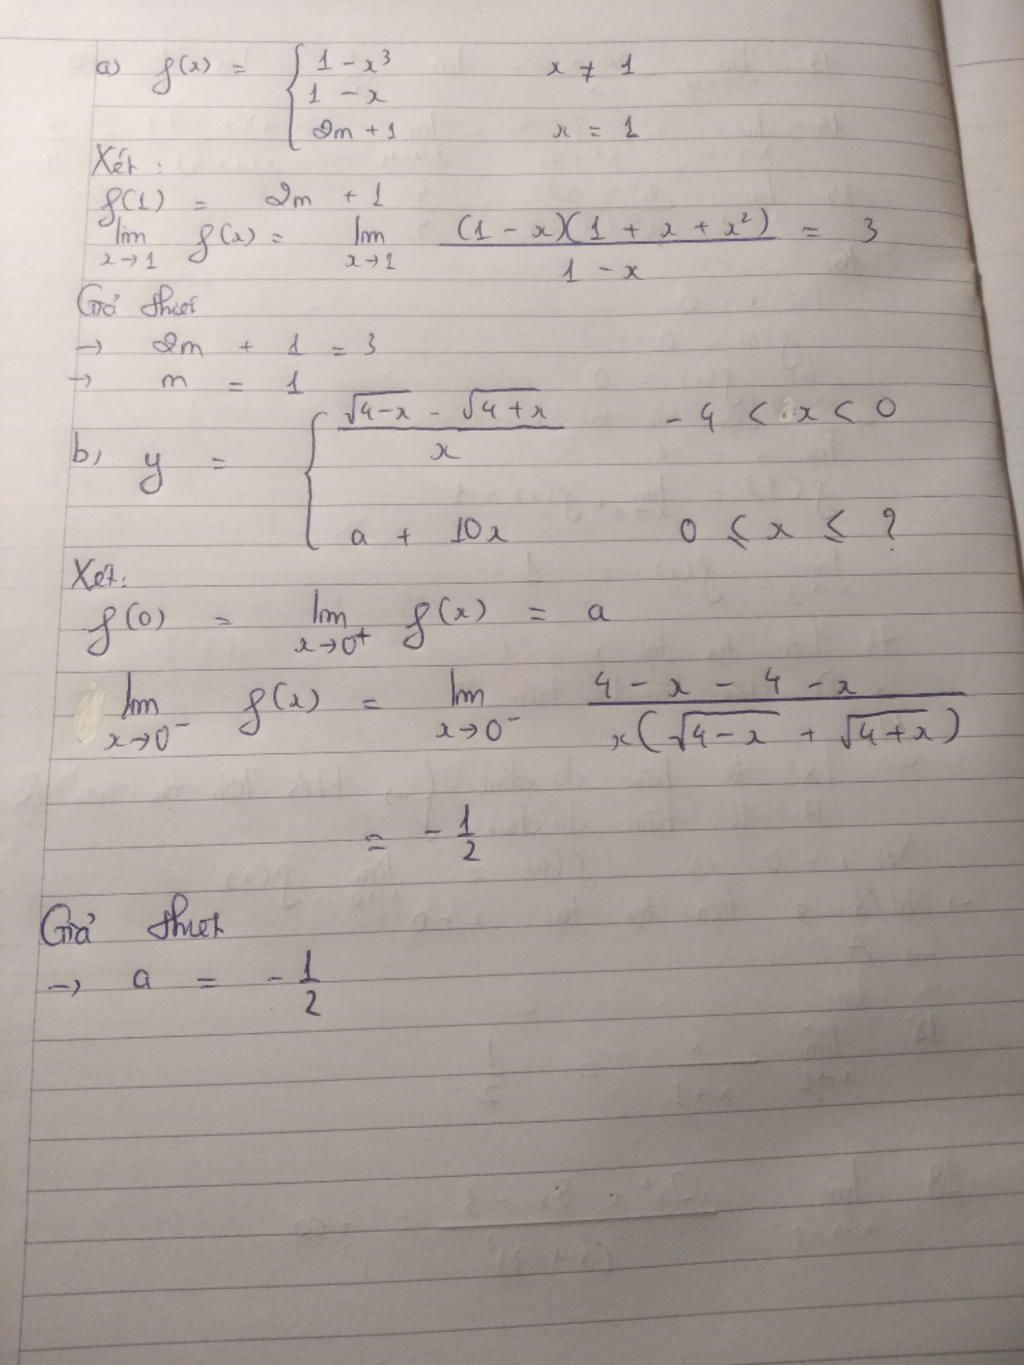 a) f(x) = { 1 - x³ x ≠ 1
1 - x
2m + 1 x = 1
Xét :
f(1) = 2m + 1
lim x→1 f(x) = lim x→1 (1 - x)(1 + x + x²) / 1 - x = 3
Giả thiết
→ 2m + 1 = 3
→ m = 1
b) y = { √4-x - √4+x / x - 4 < x < 0
a + 10x 0 ≤ x ≤ ?
Xét:
f(0) = lim x→0⁺ f(x) = a
lim x→0⁻ f(x) = lim x→0⁻ 4 - x - 4 - x / x(√4-x + √4+x)
= - 1/2
Giả thiết
→ a = - 1/2